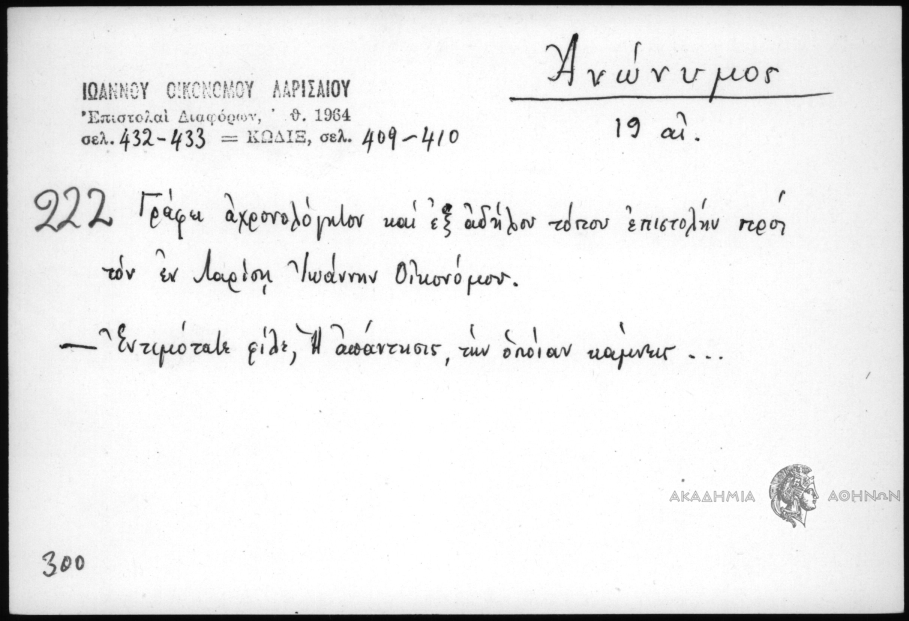 ΙΩΑΝΝΟΥ ΟΙΚΟΝΟΜΟΥ ΛΑΡΙΣΑΙΟΥ
Ἐπιστολαὶ Διαφόρων, ᾿ θ. 1964
σελ. 432-433 = ΚΩΔΙΞ, σελ. 409-410
Ἀνώνυμος
19 αἰ.
222 Γράφει ἀχρονολόγητον καὶ ἐξ ἀδήλου τόπου ἐπιστολὴν πρὸς
τὸν ἐν Λαρίσῃ Ἰωάννην Οἰκονόμου.
— Ἐντιμότατε φίλε, Ἡ ἀπάντησις, τὴν ὁποίαν κάμνεις ...
ΑΚΑΔΗΜΙΑ ΑΘΗΝΩΝ
300